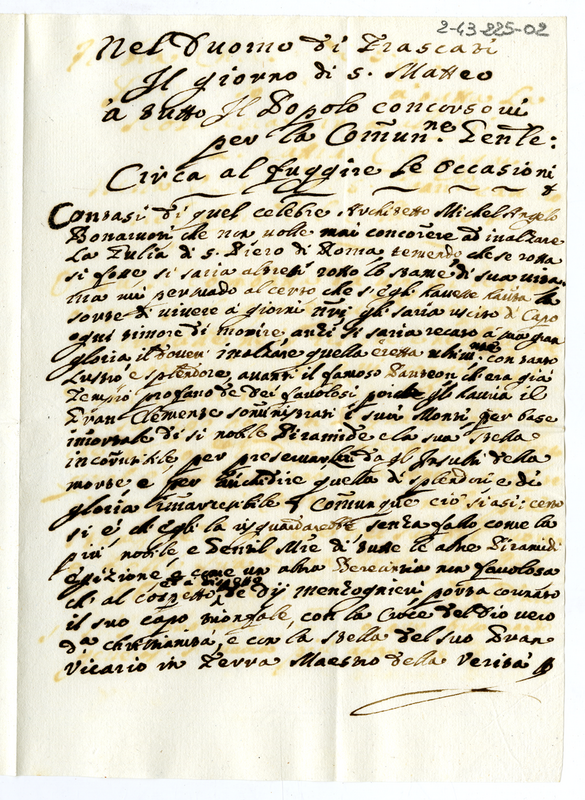 2-43-225-02
Nel Duomo di Frascati
Il giorno di S. Matteo
à tutto Il Popolo concorsovi
per la Comun.ne Gen.le:
Circa al fuggire le occasioni
Contasi di quel celebre Architetto Michel Angelo
Bonaruoti che non volle mai concorrere ad inalzare
La Gulia di S. Piero di Roma temendo che se rotta
si fosse si saria altresì rotto lo stame di sua vita.
ma mi persuado al certo che s'egli havesse hauta la
sorte di vivere a giorni nri gli saria uscito di Capo
ogni timore di morire anzi si saria recato a sua gran
gloria il dover inalzare quella eretta ultim.nte con tanto
Lustro e splendore avanti il famoso Panteon ch'era già
Tempio profano de dei favolosi gli havria il
Gran Clemente somministrati i suoi Monti per base
immortale di si nobile Piramide e la sua stella
incorruttibile per preservarla dagl'Insulti della
morte e per arichire quella di splendori e di
gloria immarcesibile comunque ciò siasi: certo
si è ch'egli la risguardarebbe senza fallo come la
più nobile e di tutte le altre Piramidi
Egizzie come un altra Berecintia non favolosa
ch'al cospetto de dij menzognieri porta coronato
il suo capo trionfale, con la Croce del Dio vero
d.a christianità, e con la stella del suo Gran
Vicario in Terra Maestro della Verità